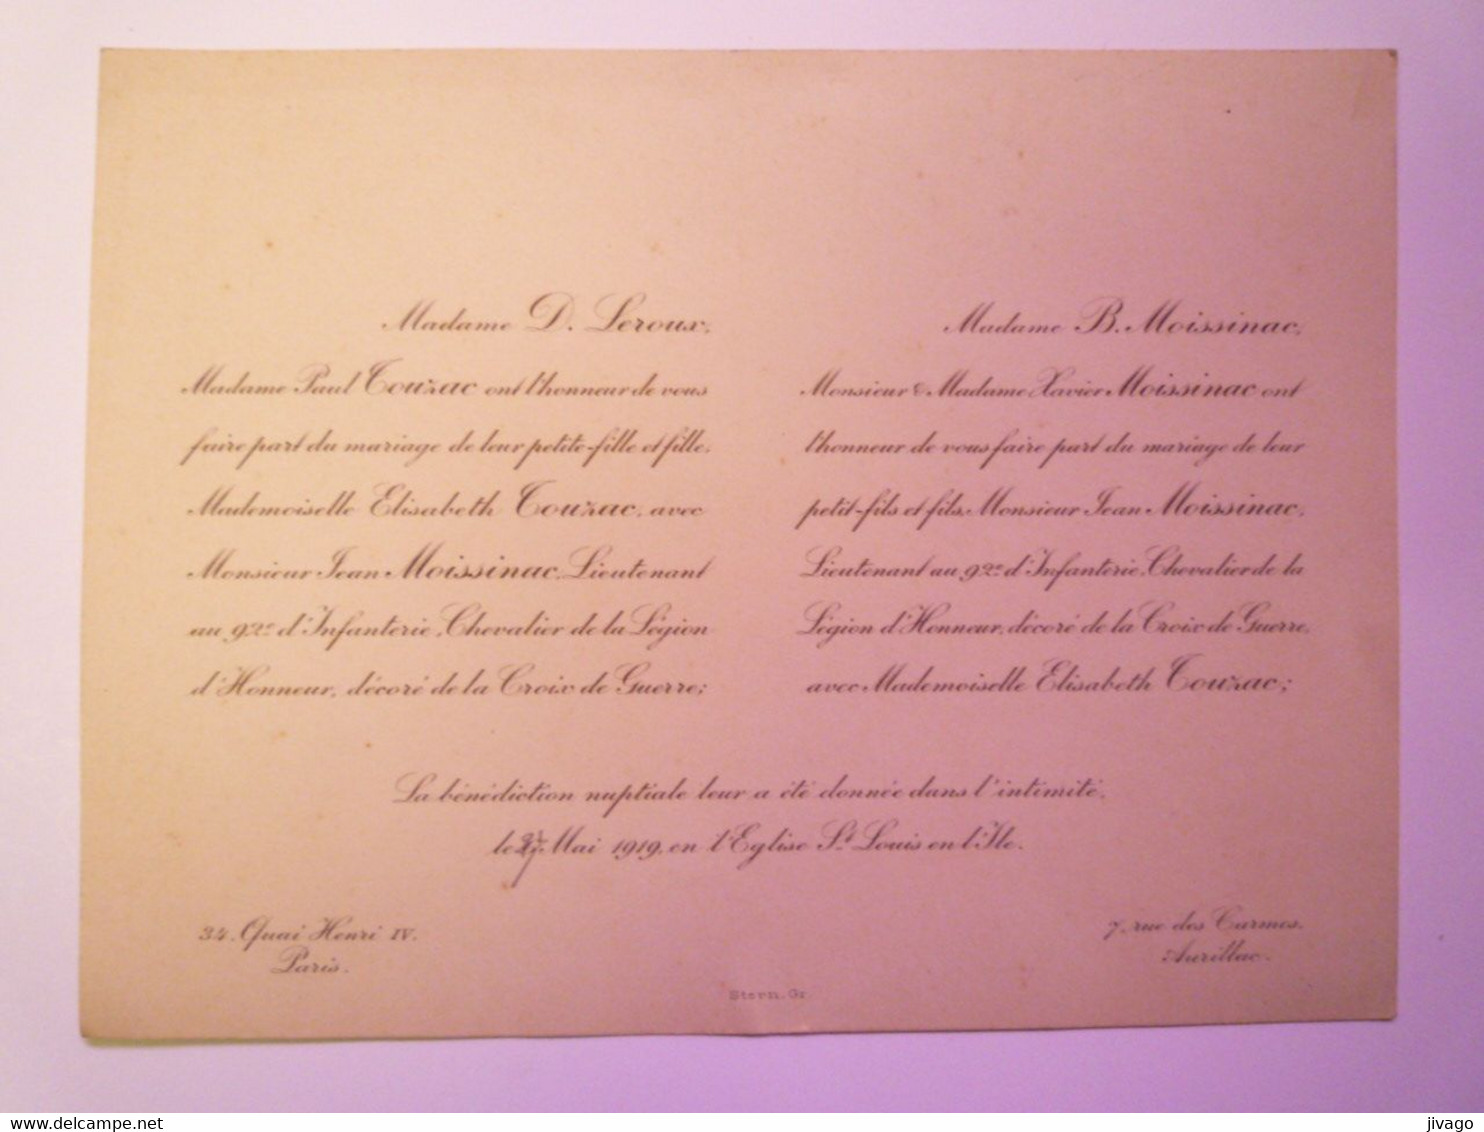 Madame D. Leroux,
Madame Paul Touzac ont l'honneur de vous
faire part du mariage de leur petite-fille et fille,
Mademoiselle Elisabeth Touzac, avec
Monsieur Jean Moissinac, Lieutenant
au 92e d'Infanterie, Chevalier de la Légion
d'Honneur, décoré de la Croix de Guerre;
Madame B. Moissinac,
Monsieur & Madame Xavier Moissinac ont
l'honneur de vous faire part du mariage de leur
petit-fils et fils, Monsieur Jean Moissinac,
Lieutenant au 92e d'Infanterie, Chevalier de la
Légion d'Honneur, décoré de la Croix de Guerre,
avec Mademoiselle Elisabeth Touzac;
La bénédiction nuptiale leur a été donnée dans l'intimité,
le Mai 1919, en l'Eglise St Louis en l'Ile.
34, Quai Henri IV.
Paris.
7, rue des Carmes.
Aurillac.
Stern. Gr.
delcampe.net
jivago